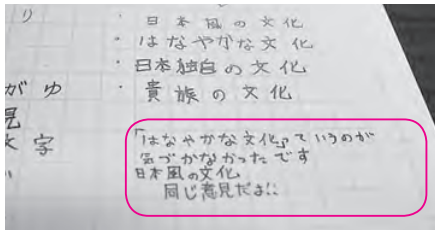 り
・日本風の文化
・はなやかな文化
・日本独自の文化
がゆ
・貴族の文化
見
文字
い
「はなやかな文化」っていうのが
気づかなかったです
日本風の文化
同じ意見だよ!!